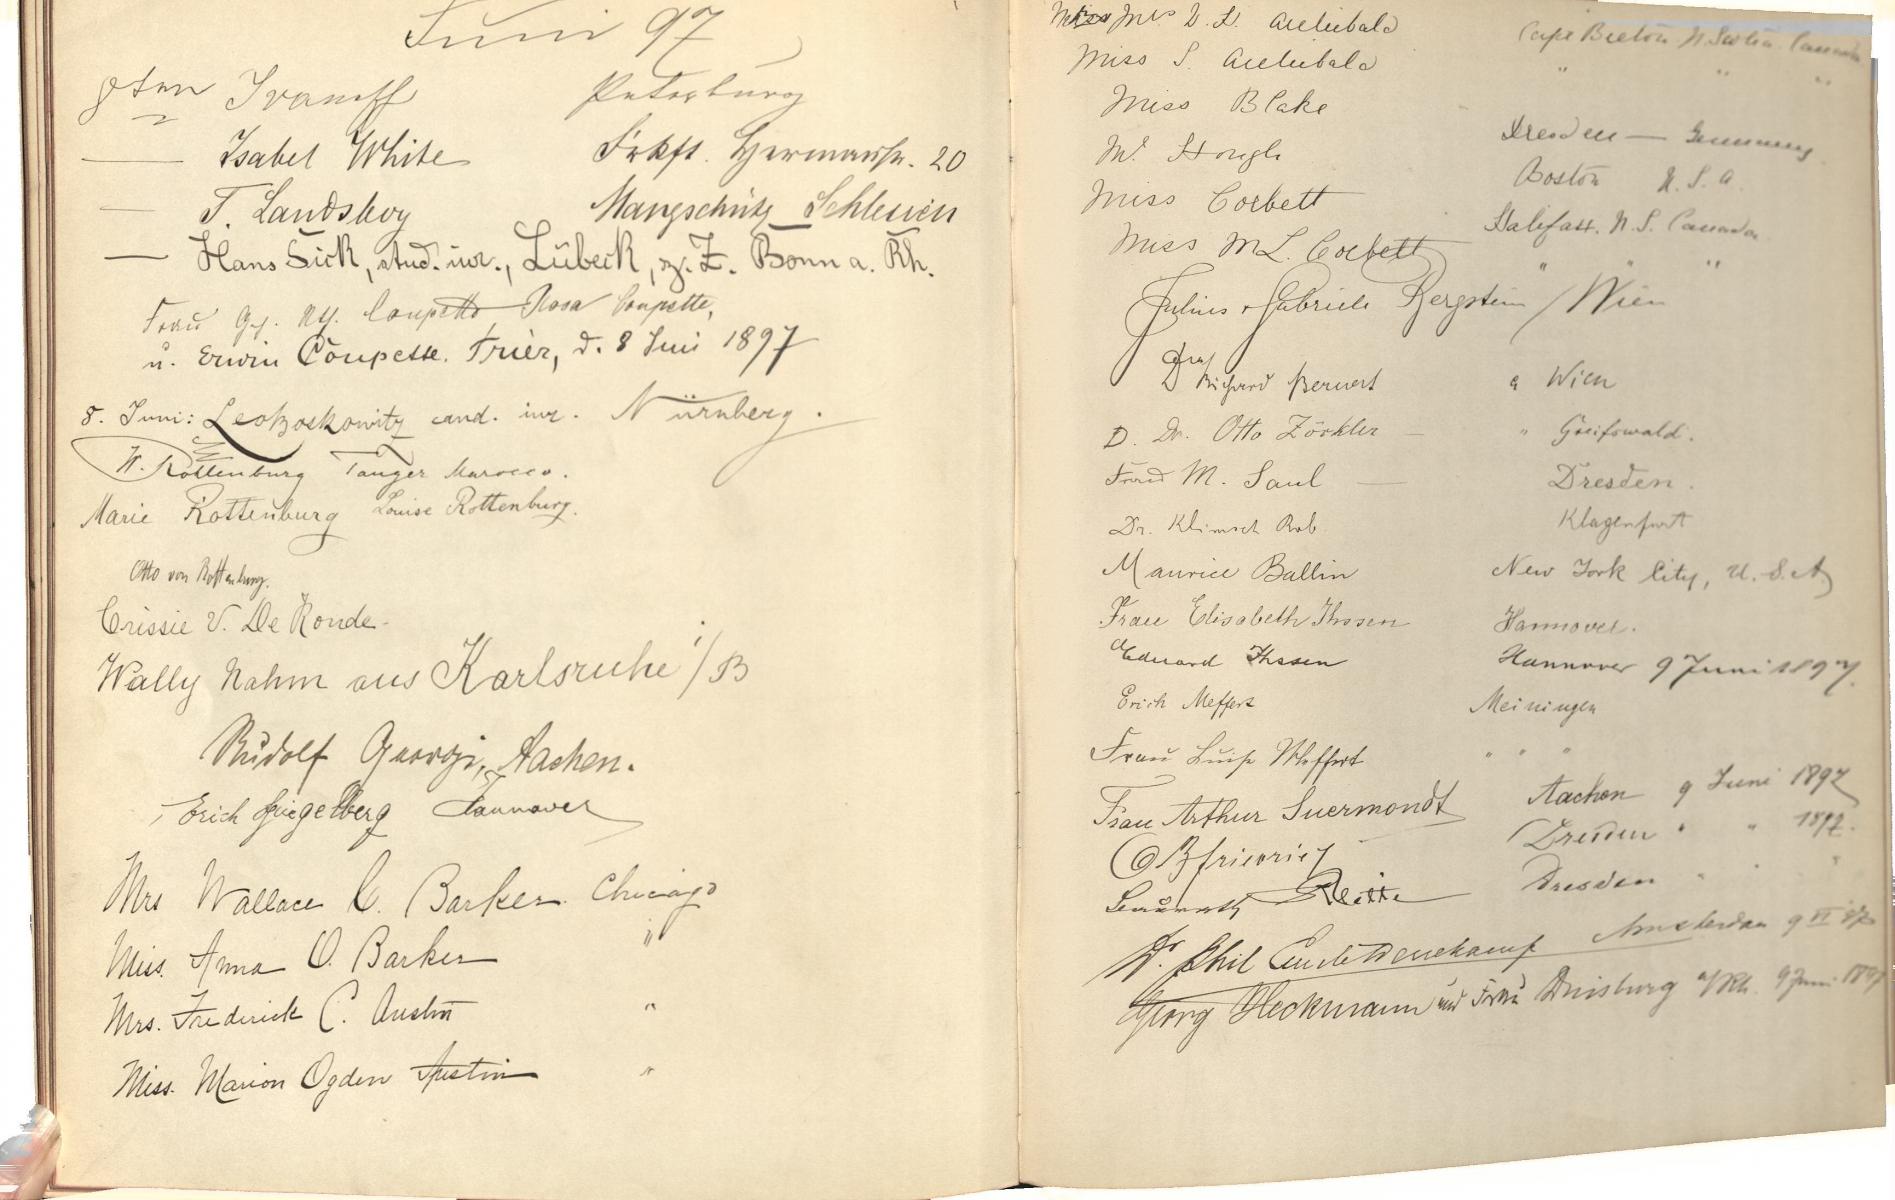 Juni 97
8ten Ivanoff Petersburg
Isabel White Frkft. Hermannstr. 20
T. Landsberg Mangschütz Schlesien
Hans Sick, stud. iur., Lübeck, z. Z. Bonn a. Rh.
Frau Coupette Rosa Coupette,
u. Erwin Coupette. Trier, d. 8 Juni 1897
8. Juni: Leo Boskowitz cand. iur. Nürnberg.
W. Rottenburg Tanger Marocco.
Marie Rottenburg Louise Rottenburg.
Otto von Rottenburg.
Crissie V. De Ronde
Wally Nahm aus Karlsruhe i/B
Rudolf Georgi, Aachen.
Erich Spiegelberg Hannover
Mrs Wallace C. Barker Chicago
Miss. Anna O. Barker "
Mrs. Frederick C. Austin "
Miss. Marion Ogden Austin "
Mrs Archibald Cape Breton N. Scotia Canada
Miss S. Archibald " " "
Miss Blake
Dresden — Germany
Boston U. S. A.
Miss Corbett Halifax. N. S. Canada
Miss M L. Corbett " " "
Julius & Gabriele Bergstein / Wien
Richard Wien
D. Dr. Otto Zöckler — " Greifswald.
Frau M. Saul — Dresden.
Dr. Klimsch Rob. Klagenfurt
Maurice Ballin New York City, U. S. A
Frau Elisabeth Ihssen Hannover.
Eduard Ihssen Hannover 9 Juni 1897.
Erich Meffert Meiningen
Frau Luise Meffert " " "
Frau Arthur Suermondt Aachen 9 Juni 1897
Dresden " " 1897.
Dresden " "
Dr. phil Amsterdam 9 VI 97
Georg Heckmann und Frau Duisburg a/Rh. 9 Juni 1897